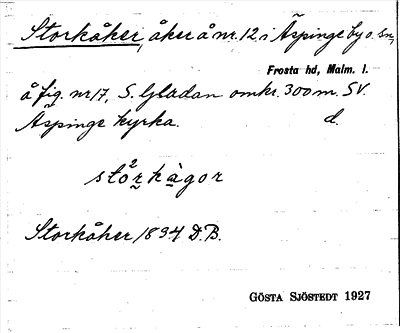 Storkåker, åker å nr. 12 i Äspinge by o. sn,
Frosta hd, Malm. l.
å fig. nr 17, S. Gladan omkr. 300 m. SV.
Äspinge kyrka. d.
Storkåker 1894 D.B.
GÖSTA SJÖSTEDT 1927